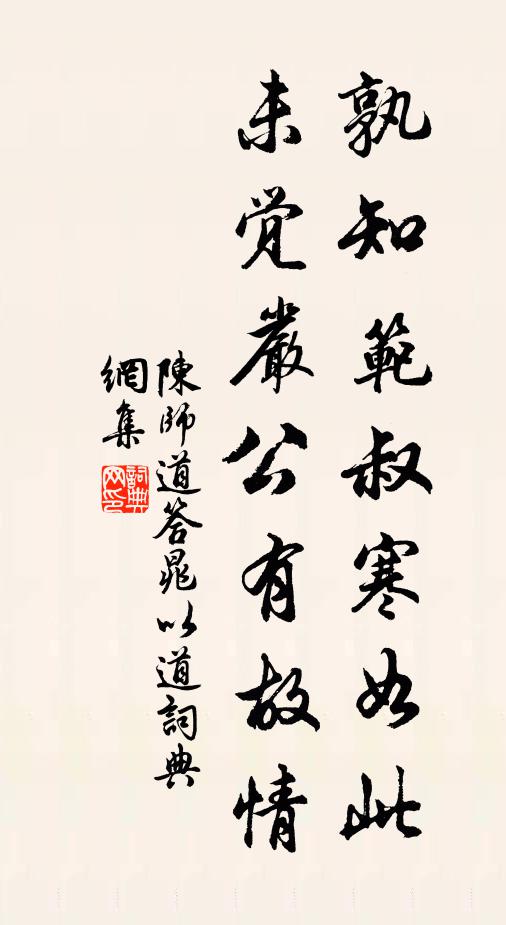 孰知範叔寒如此
未覺嚴公有故情
陳師道答晁以道詞典
網集
詞典
网印